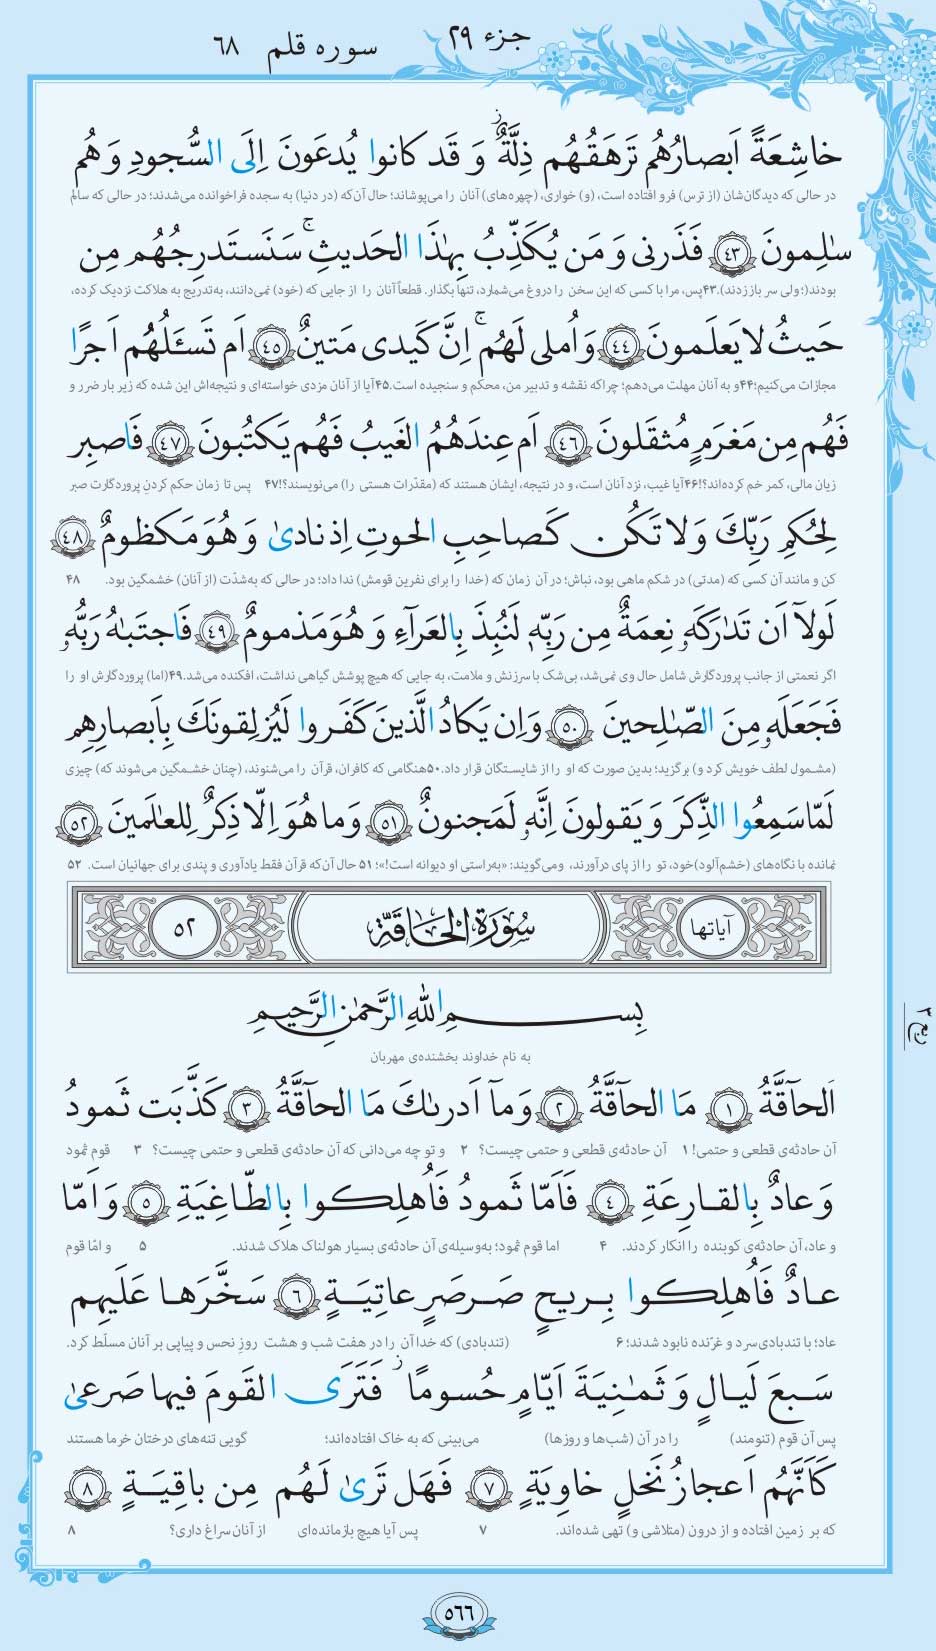 جزء ۲۹ سوره قلم ۶۸
خاشِعَةً اَبصارُهُم تَرهَقُهُم ذِلَّةٌ ۖ وَ قَد كانوا يُدعَونَ اِلَى السُّجودِ وَ هُم
در حالی که دیدگان‌شان (از ترس) فرو افتاده است، (و) خواری، (چهره‌های) آنان را می‌پوشاند؛ حال آن‌که (در دنیا) به سجده فراخوانده می‌شدند؛ در حالی که سالم
سٰلِمونَ ﴿٤٣﴾ فَذَرنى وَ مَن يُكَذِّبُ بِهٰذَا الحَديثِ ۚ سَنَستَدرِجُهُم مِن
بودند(؛ ولی سر باز زدند).۴۳ پس، مرا با کسی که این سخن را دروغ می‌شمارد، تنها بگذار. قطعاً آنان را از جایی که (خود) نمی‌دانند، به‌تدریج به هلاکت نزدیک کرده،
حَيثُ لا يَعلَمونَ ﴿٤٤﴾ وَ اُملى لَهُم ۚ اِنَّ كَيدى مَتينٌ ﴿٤٥﴾ اَم تَسـَٔلُهُم اَجرًا
مجازات می‌کنیم؛۴۴ و به آنان مهلت می‌دهم؛ چراکه نقشه و تدبیر من، محکم و سنجیده است.۴۵ آیا از آنان مزدی خواسته‌ای و نتیجه‌اش این شده که زیر بار ضرر و
فَهُم مِن مَغرَمٍ مُثقَلونَ ﴿٤٦﴾ اَم عِندَهُمُ الغَيبُ فَهُم يَكتُبونَ ﴿٤٧﴾ فَاصبِر
زیان مالی، کمر خم کرده‌اند؟!۴۶ آیا غیب، نزد آنان است، و در نتیجه، ایشان هستند که (مقدّرات هستی را) می‌نویسند؟!۴۷ پس تا زمان حکم کردن پروردگارت صبر
لِحُكمِ رَبِّكَ وَ لا تَكُن كَصاحِبِ الحوتِ اِذ نادىٰ وَ هُوَ مَكظومٌ ﴿٤٨﴾
کن و مانند آن کسی که (مدتی) در شکم ماهی بود، نباش؛ در آن زمان که (خدا را برای نفرین قومش) ندا داد؛ در حالی که به‌شدّت (از آنان) خشمگین بود. ۴۸
لَولآ اَن تَدٰرَكَهٗ نِعمَةٌ مِن رَبِّهٖ لَنُبِذَ بِالعَرآءِ وَ هُوَ مَذمومٌ ﴿٤٩﴾ فَاجتَبٰهُ رَبُّهٗ
اگر نعمتی از جانب پروردگارش شامل حال وی نمی‌شد، بی‌شک با سرزنش و ملامت، به جایی که هیچ پوشش گیاهی نداشت، افکنده می‌شد.۴۹ (اما) پروردگارش او را
فَجَعَلَهٗ مِنَ الصّٰلِحينَ ﴿٥٠﴾ وَ اِن يَكادُ الَّذينَ كَفَروا لَيُزلِقونَكَ بِاَبصارِهِم
(مشمول لطف خویش کرد و) برگزید؛ بدین صورت که او را از شایستگان قرار داد.۵۰ هنگامی که کافران، قرآن را می‌شنوند، (چنان خشمگین می‌شوند که) چیزی
لَمّا سَمِعُوا الذِّكرَ وَ يَقولونَ اِنَّهٗ لَمَجنونٌ ﴿٥١﴾ وَ ما هُوَ اِلّا ذِكرٌ لِلعٰلَمينَ ﴿٥٢﴾
نمانده با نگاه‌های (خشم‌آلود)خود، تو را از پای درآورند، ومی‌گویند: «به‌راستی او دیوانه است!»؛ ۵۱ حال آن‌که قرآن فقط یادآوری و پندی برای جهانیان است. ۵۲
آیاتها سُورَةُ الحَاقَّة ٥٢
بِسمِ اللّٰهِ الرَّحمٰنِ الرَّحيمِ
به نام خداوند بخشنده‌ی مهربان
ربع ٢
اَلحآقَّةُ ﴿١﴾ مَا الحآقَّةُ ﴿٢﴾ وَ مآ اَدرىٰكَ مَا الحآقَّةُ ﴿٣﴾ كَذَّبَت ثَمودُ
آن حادثه‌ی قطعی و حتمی! ۱ آن حادثه‌ی قطعی و حتمی چیست؟ ۲ و تو چه می‌دانی که آن حادثه‌ی قطعی و حتمی چیست؟ ۳ قوم ثمود
وَ عادٌ بِالقارِعَةِ ﴿٤﴾ فَاَمّا ثَمودُ فَاُهلِكوا بِالطّاغِيَةِ ﴿٥﴾ وَ اَمّا
و عاد، آن حادثه‌ی کوبنده را انکار کردند. ۴ اما قوم ثمود؛ به‌وسیله‌ی آن حادثه‌ی بسیار هولناک هلاک شدند. ۵ و امّا قوم
عادٌ فَاُهلِكوا بِريحٍ صَرصَرٍ عاتِيَةٍ ﴿٦﴾ سَخَّرَها عَلَيهِم
عاد؛ با تندبادی سرد و غرّنده نابود شدند؛ ۶ (تندبادی) که خدا آن را در هفت شب و هشت روزِ نحس و پیاپی بر آنان مسلّط کرد.
سَبعَ لَيالٍ وَ ثَمٰنِيَةَ اَيّامٍ حُسومًا ۖ فَتَرَى القَومَ فيها صَرعىٰ
پس آن قوم (تنومند) را در آن (شب‌ها و روزها) می‌بینی که به خاک افتاده‌اند؛ گویی تنه‌های درختان خرما هستند
كَاَنَّهُم اَعجازُ نَخلٍ خاوِيَةٍ ﴿٧﴾ فَهَل تَرىٰ لَهُم مِن باقِيَةٍ ﴿٨﴾
که بر زمین افتاده و از درون (متلاشی و) تهی شده‌اند. ۷ پس آیا هیچ بازمانده‌ای از آنان سراغ داری؟ ۸
٥٦٦